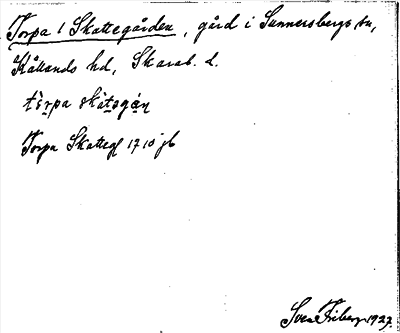 Torpa 1 Skattegården, gård i Sunnersbergs sn,
Kållands hd, Skarab. l.
tòrpa skàtsgán
Torpa Skatteg 1710 jb
Sven Friberg 1927.